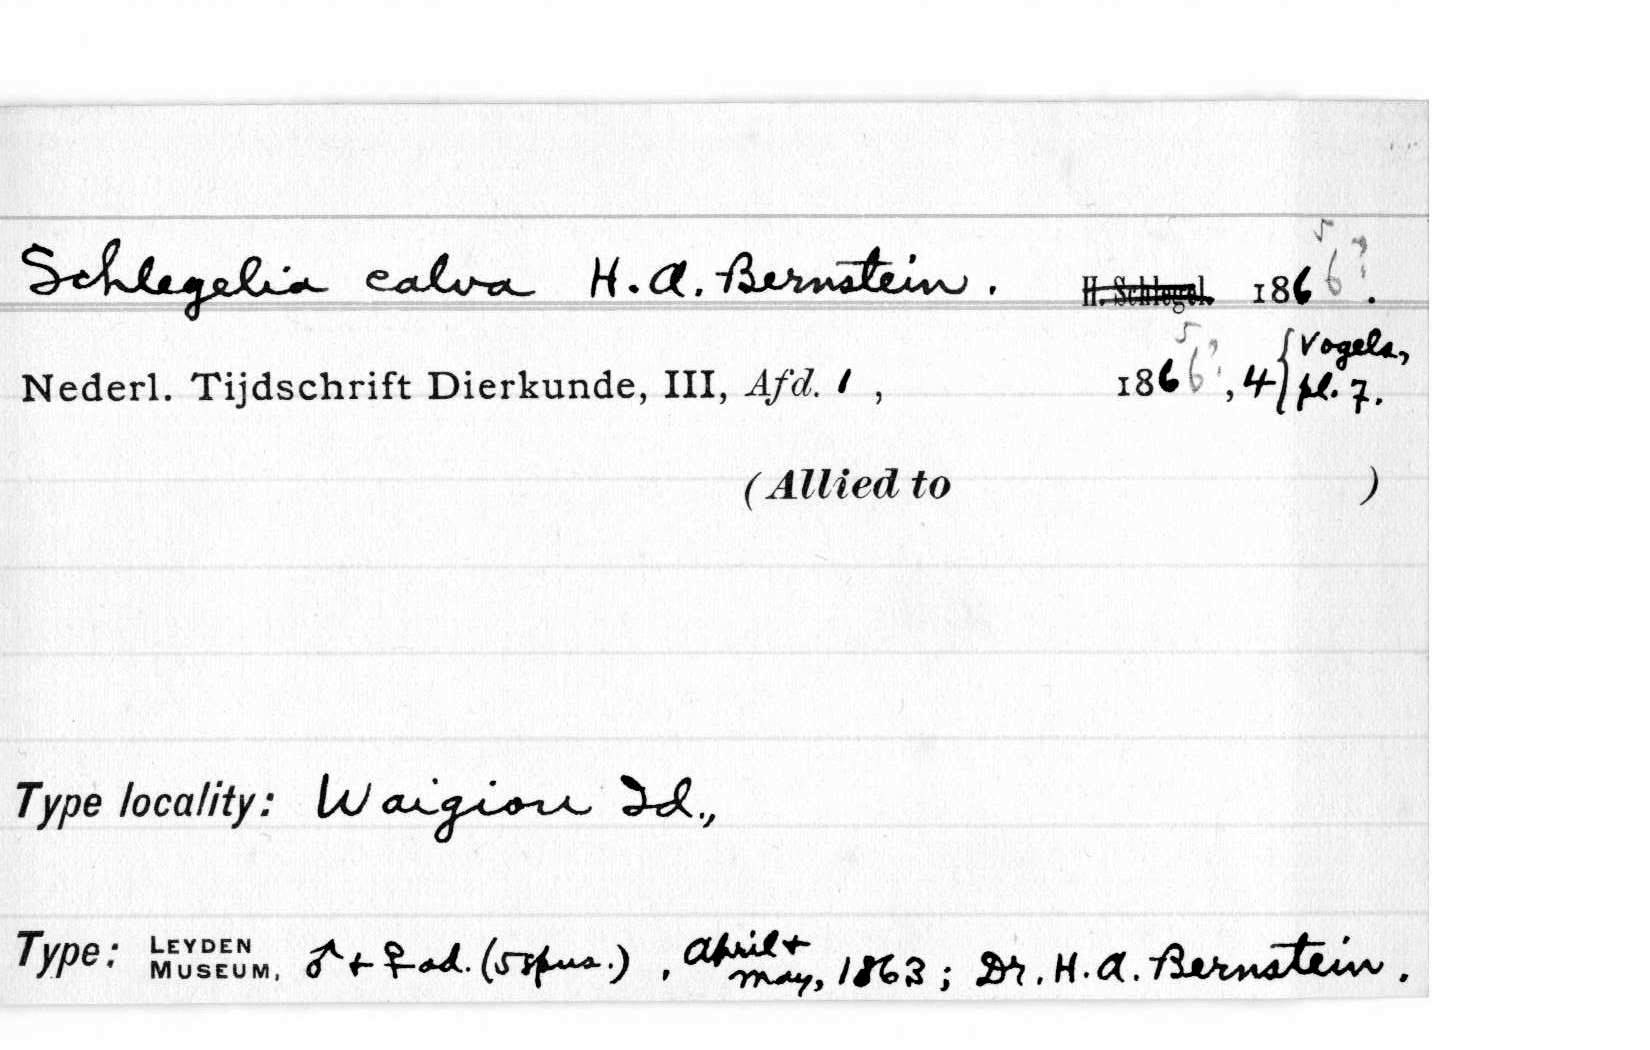 Schlegelia calva H. A. Bernstein. H. Schlegel. 1866 5 6?.
Nederl. Tijdschrift Dierkunde, III, Afd. 1, 1866 5 6?, 4 { Vogels, pl. 7.
(Allied to )
Type locality: Waigiou Id.,
Type: LEYDEN MUSEUM, ♂ + ♀ ad. (5 spns.), April + May, 1863; Dr. H. A. Bernstein.